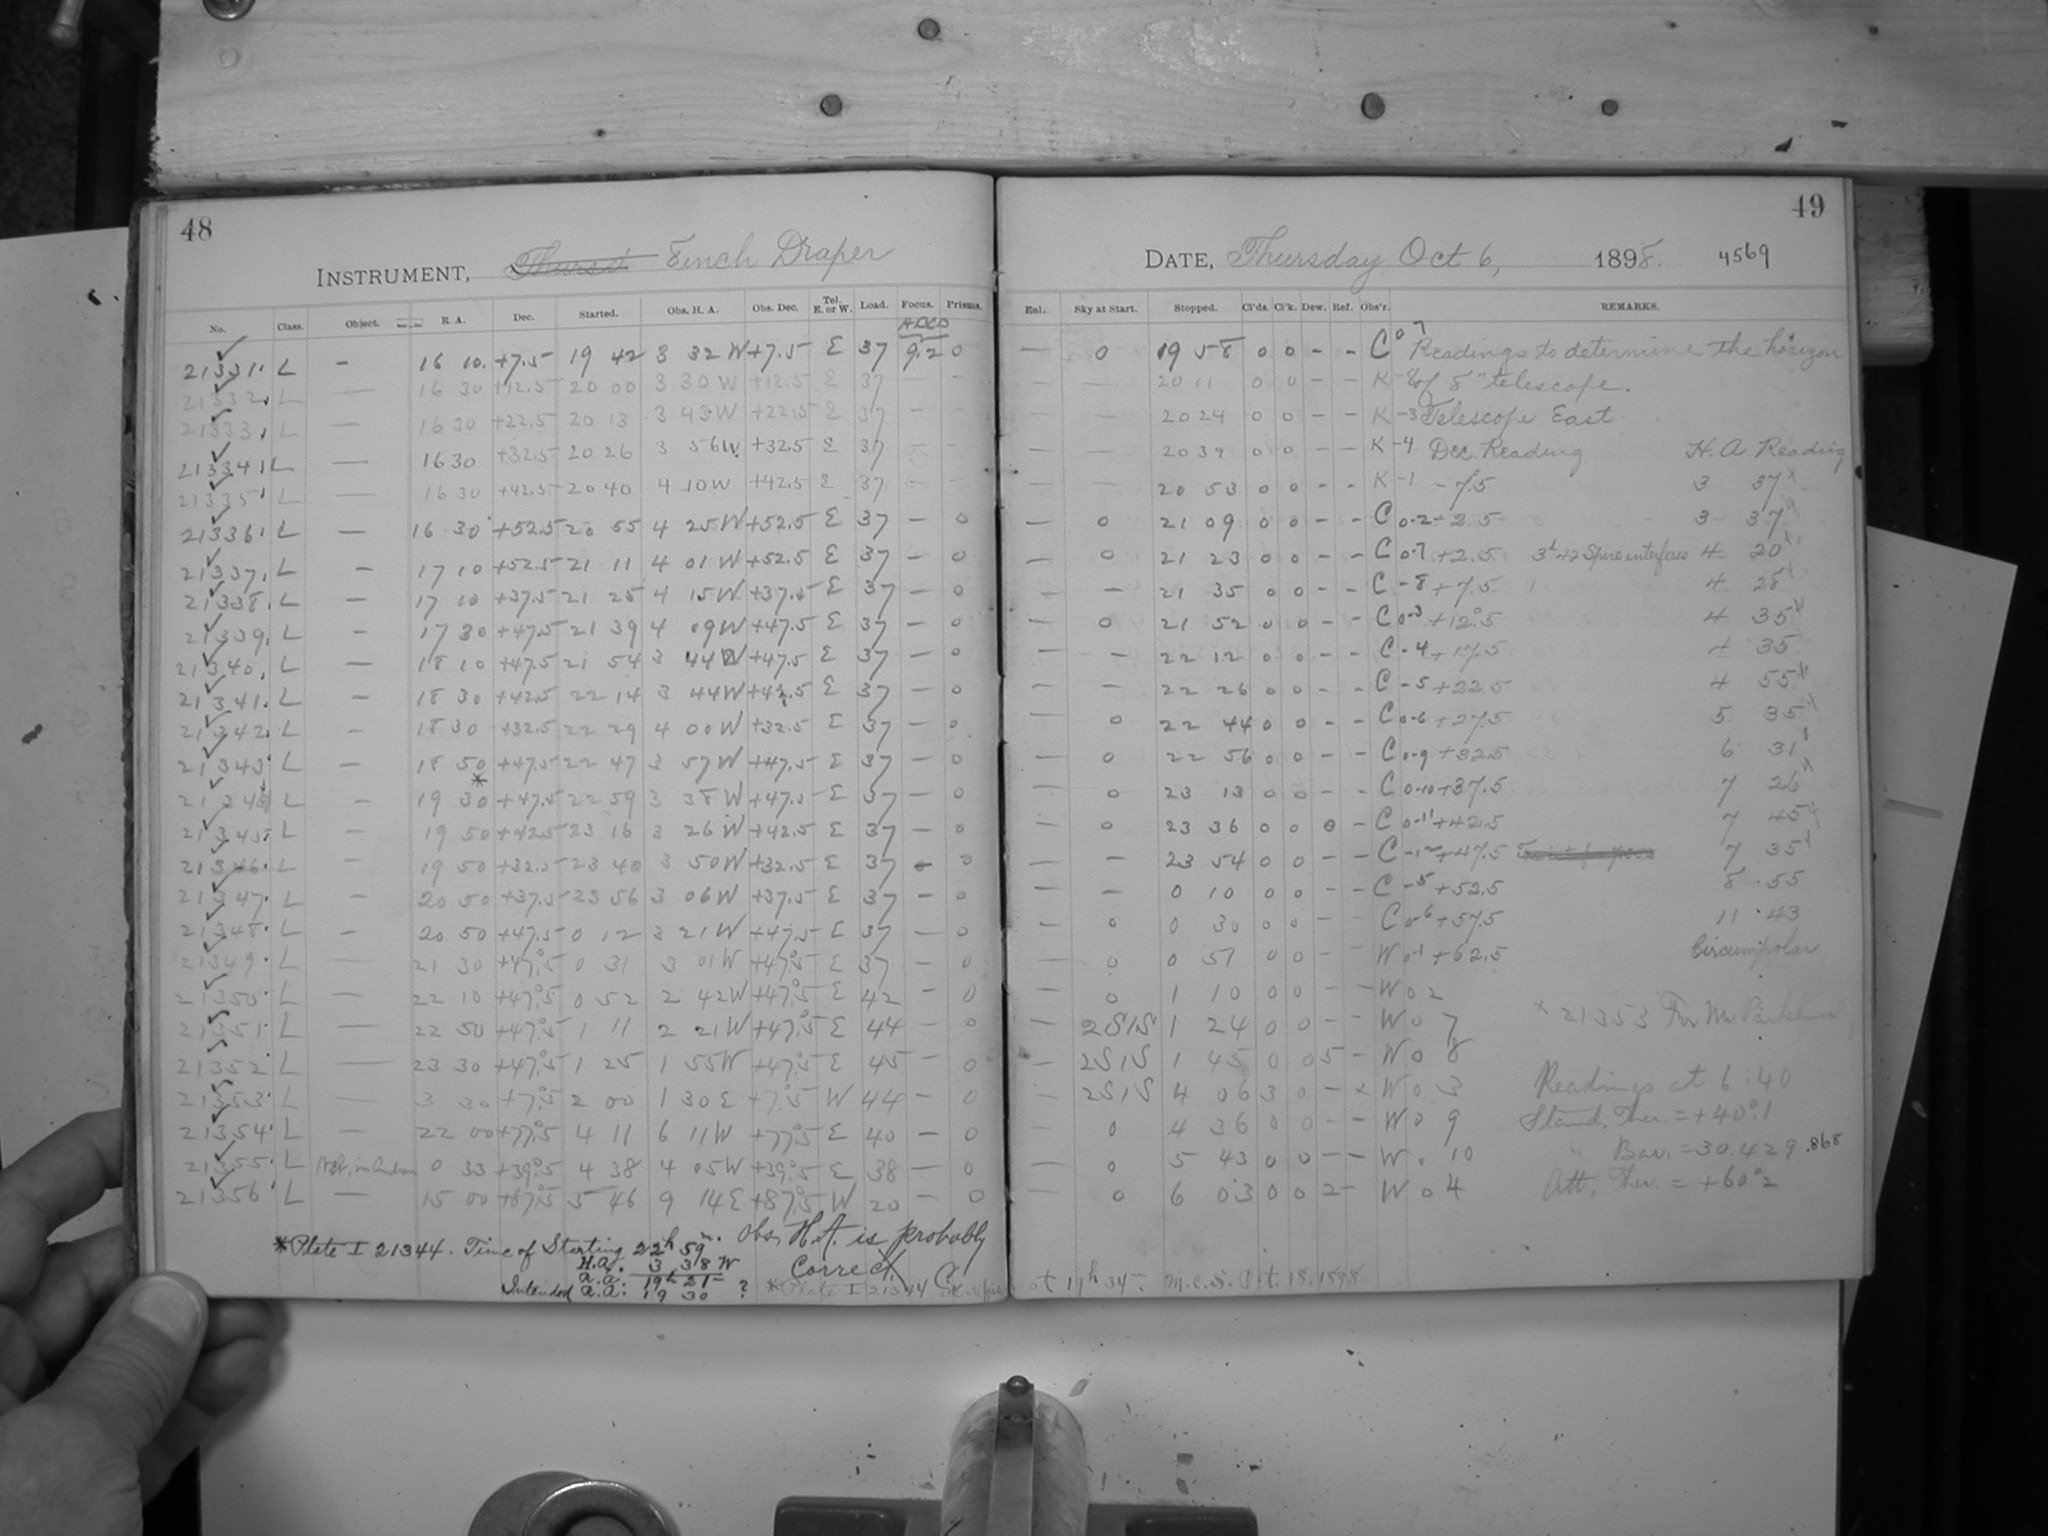 48
INSTRUMENT, Thursd 8 inch Draper
No. Class. Object. R. A. Dec. Started. Obs. H. A. Obs. Dec. Tel. E. or W. Load. Focus. Prisms.
21331. L – 16 10. +7.5 19 42 3 32 W +7.5 E 37 9.2 0
21332. L — 16 30 +12.5 20 00 3 30 W +12.5 E 37 – –
21333. L — 16 30 +22.5 20 13 3 43 W +22.5 E 37 – –
21334. L — 16 30 +32.5 20 26 3 56 W +32.5 E 37 – –
21335. L — 16 30 +42.5 20 40 4 10 W +42.5 E 37 – –
21336. L – 16 30 +52.5 20 55 4 25 W +52.5 E 37 – 0
21337. L – 17 10 +52.5 21 11 4 01 W +52.5 E 37 – 0
21338. L – 17 10 +37.5 21 25 4 15 W +37.5 E 37 – 0
21339. L – 17 30 +47.5 21 39 4 09 W +47.5 E 37 – 0
21340. L – 18 10 +47.5 21 54 3 44 W +47.5 E 37 – 0
21341. L – 18 30 +42.5 22 14 3 44 W +42.5 E 37 – 0
21342. L – 18 30 +32.5 22 29 4 00 W +32.5 E 37 – 0
21343. L – 18 50 +47.5 22 47 3 57 W +47.5 E 37 – 0
21344 L – 19 30 * +47.5 22 59 3 38 W +47.5 E 37 – 0
21345. L – 19 50 +42.5 23 16 3 26 W +42.5 E 37 – 0
21346. L – 19 50 +32.5 23 40 3 50 W +32.5 E 37 – 0
21347. L – 20 50 +37.5 23 56 3 06 W +37.5 E 37 – 0
21348. L – 20 50 +47.5 0 12 3 21 W +47.5 E 37 – 0
21349. L — 21 30 +47.5 0 31 3 01 W +47.5 E 37 – 0
21350. L — 22 10 +47.5 0 52 2 42 W +47.5 E 42 – 0
21351. L — 22 50 +47.5 1 11 2 21 W +47.5 E 44 – 0
21352. L — 23 30 +47.5 1 25 1 55 W +47.5 E 45 – 0
21353. L — 3 30 +7.5 2 00 1 30 E +7.5 W 44 – 0
21354. L — 22 00 +77.5 4 11 6 11 W +77.5 E 40 – 0
21355. L 0 33 +39.5 4 38 4 05 W +39.5 E 38 – 0
21356. L — 15 00 +87.5 5 46 9 14 E +87.5 W 20 – 0
*Plate I 21344. Time of Starting 22h 59m. Obs. H.A. is probably
H.A. 3 38 W Correct. C.
R.A. 19h 21
Intended R.A. 19 30 ?
*Plate I 21344 at 19h 34m. M.C.S. Oct. 18, 1898
49
DATE, Thursday Oct 6, 1898. 4569
Enl. Sky at Start. Stopped. Cl'ds. Cl'k. Dew. Ref. Obs'r. REMARKS.
— 0 19 58 0 0 – – C 0 7 Readings to determine the horizon
— — 20 11 0 0 – – K of 8" telescope.
— — 20 24 0 0 – – K -3 Telescope East
— — 20 39 0 0 – – K -4 Dec. Reading H. A. Reading
— — 20 53 0 0 – – K -1 -7.5 3 37
— 0 21 09 0 0 – – C 0-2 -2.5 3 37
— 0 21 23 0 0 – – C 0-7 +2.5 Spire interferes 4 20
— – 21 35 0 0 – – C -8 +7.5 4 28
— 0 21 52 0 0 – – C 0-3 +12.5 4 35
— – 22 12 0 0 – – C -4 +17.5 4 35
— – 22 26 0 0 – – C -5 +22.5 4 55
— 0 22 44 0 0 – – C 0-6 +27.5 5 35
— 0 22 56 0 0 – – C 0-9 +32.5 6 31
— 0 23 13 0 0 – – C 0-10 +37.5 7 26
— 0 23 36 0 0 0 – C 0-11 +42.5 7 45
— – 23 54 0 0 – – C -12 +47.5 7 35
— – 0 10 0 0 – – C -5 +52.5 8 55
— 0 0 30 0 0 – – C 0-6 +57.5 11 43
— 0 0 51 0 0 – – W 0-1 +62.5 Circumpolar
— 0 1 10 0 0 – – W 0 2
— 2S1S 1 24 0 0 – – W 0 7 * 21353 For Mr
— 2S1S 1 45 0 0 5 – W 0 8
— 2S1S 4 06 3 0 – * W 0 3 Readings at 6:40
0 4 36 0 0 – – W 0 9 Stand. Ther. = +40°.1
— 0 5 43 0 0 – – W 0 10 " Bar. = 30.429 .868
— 0 6 03 0 0 2 – W 0 4 Att. Ther. = +60°2